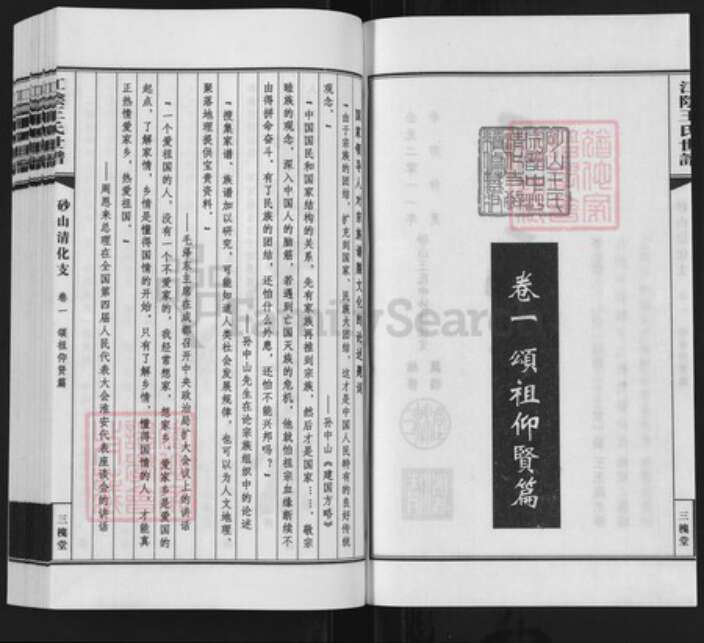 江陰王氏世譜
三槐堂
卷一頌祖仰賢篇
国家领导人对宗族谱牒文化的论述题谈
“由于宗族的团结，扩充到国家、民族大团结，这才是中国人民特有的良好传统
观念。”
——孙中山《建国方略》
“中国国民和国家结构的关系，先有家族再推到宗族，然后才是国家……，敬宗
睦族的观念，深入中国人的脑筋，若遇到亡国灭族的危机，他就怕祖宗血缘断续不
由得拼命奋斗，有了民族的团结，还怕什么外患，还怕不能兴邦吗？”
孙中山先生在论宗族组织中的论述
“搜集家谱、族谱加以研究，可能知道人类社会发展规律，也可以为人文地理、
聚落地理提供宝贵资料。”
——毛泽东主席在成都召开中央政治局扩大会议上的讲话
“一个爱祖国的人，没有一个不爱家的，我经常想家，想家乡。爱家乡是爱国的
起点，了解家情、乡情是懂得国情的开始，只有了解乡情、懂得国情的人，才能真
正热情爱家乡，热爱祖国。”
——周恩来总理在全国第四届人民代表大会淮安代表座谈会的讲话
江陰王氏世譜
砂山清化支
卷一 頌祖仰賢篇
三槐堂
FamilySearch